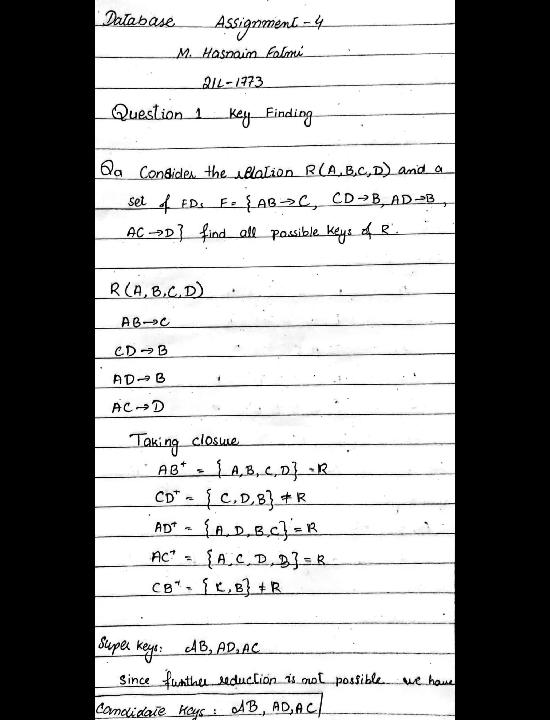 Database Assignment - 4
M. Hasnain Fatmi
21L-1773
Question 1 Key Finding
Qa Consider the relation R(A,B,C,D) and a
set of FDs F = { AB→C, CD→B, AD→B,
AC→D} find all possible keys of R.
R(A,B,C,D)
AB→C
CD→B
AD→B
AC→D
Taking closure
AB⁺ = { A,B,C,D} = R
CD⁺ = { C,D,B} ≠ R
AD⁺ = {A,D,B,C} = R
AC⁺ = {A,C,D,B} = R
CB⁺ = {C,B} ≠ R
Super keys: AB, AD, AC
Since further reduction is not possible we have
Candidate Keys: AB, AD, AC